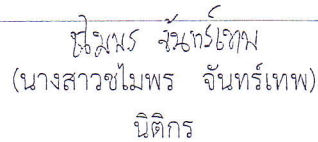 ชไมพร จันทร์เทพ
(นางสาวชไมพร จันทร์เทพ)
นิติกร